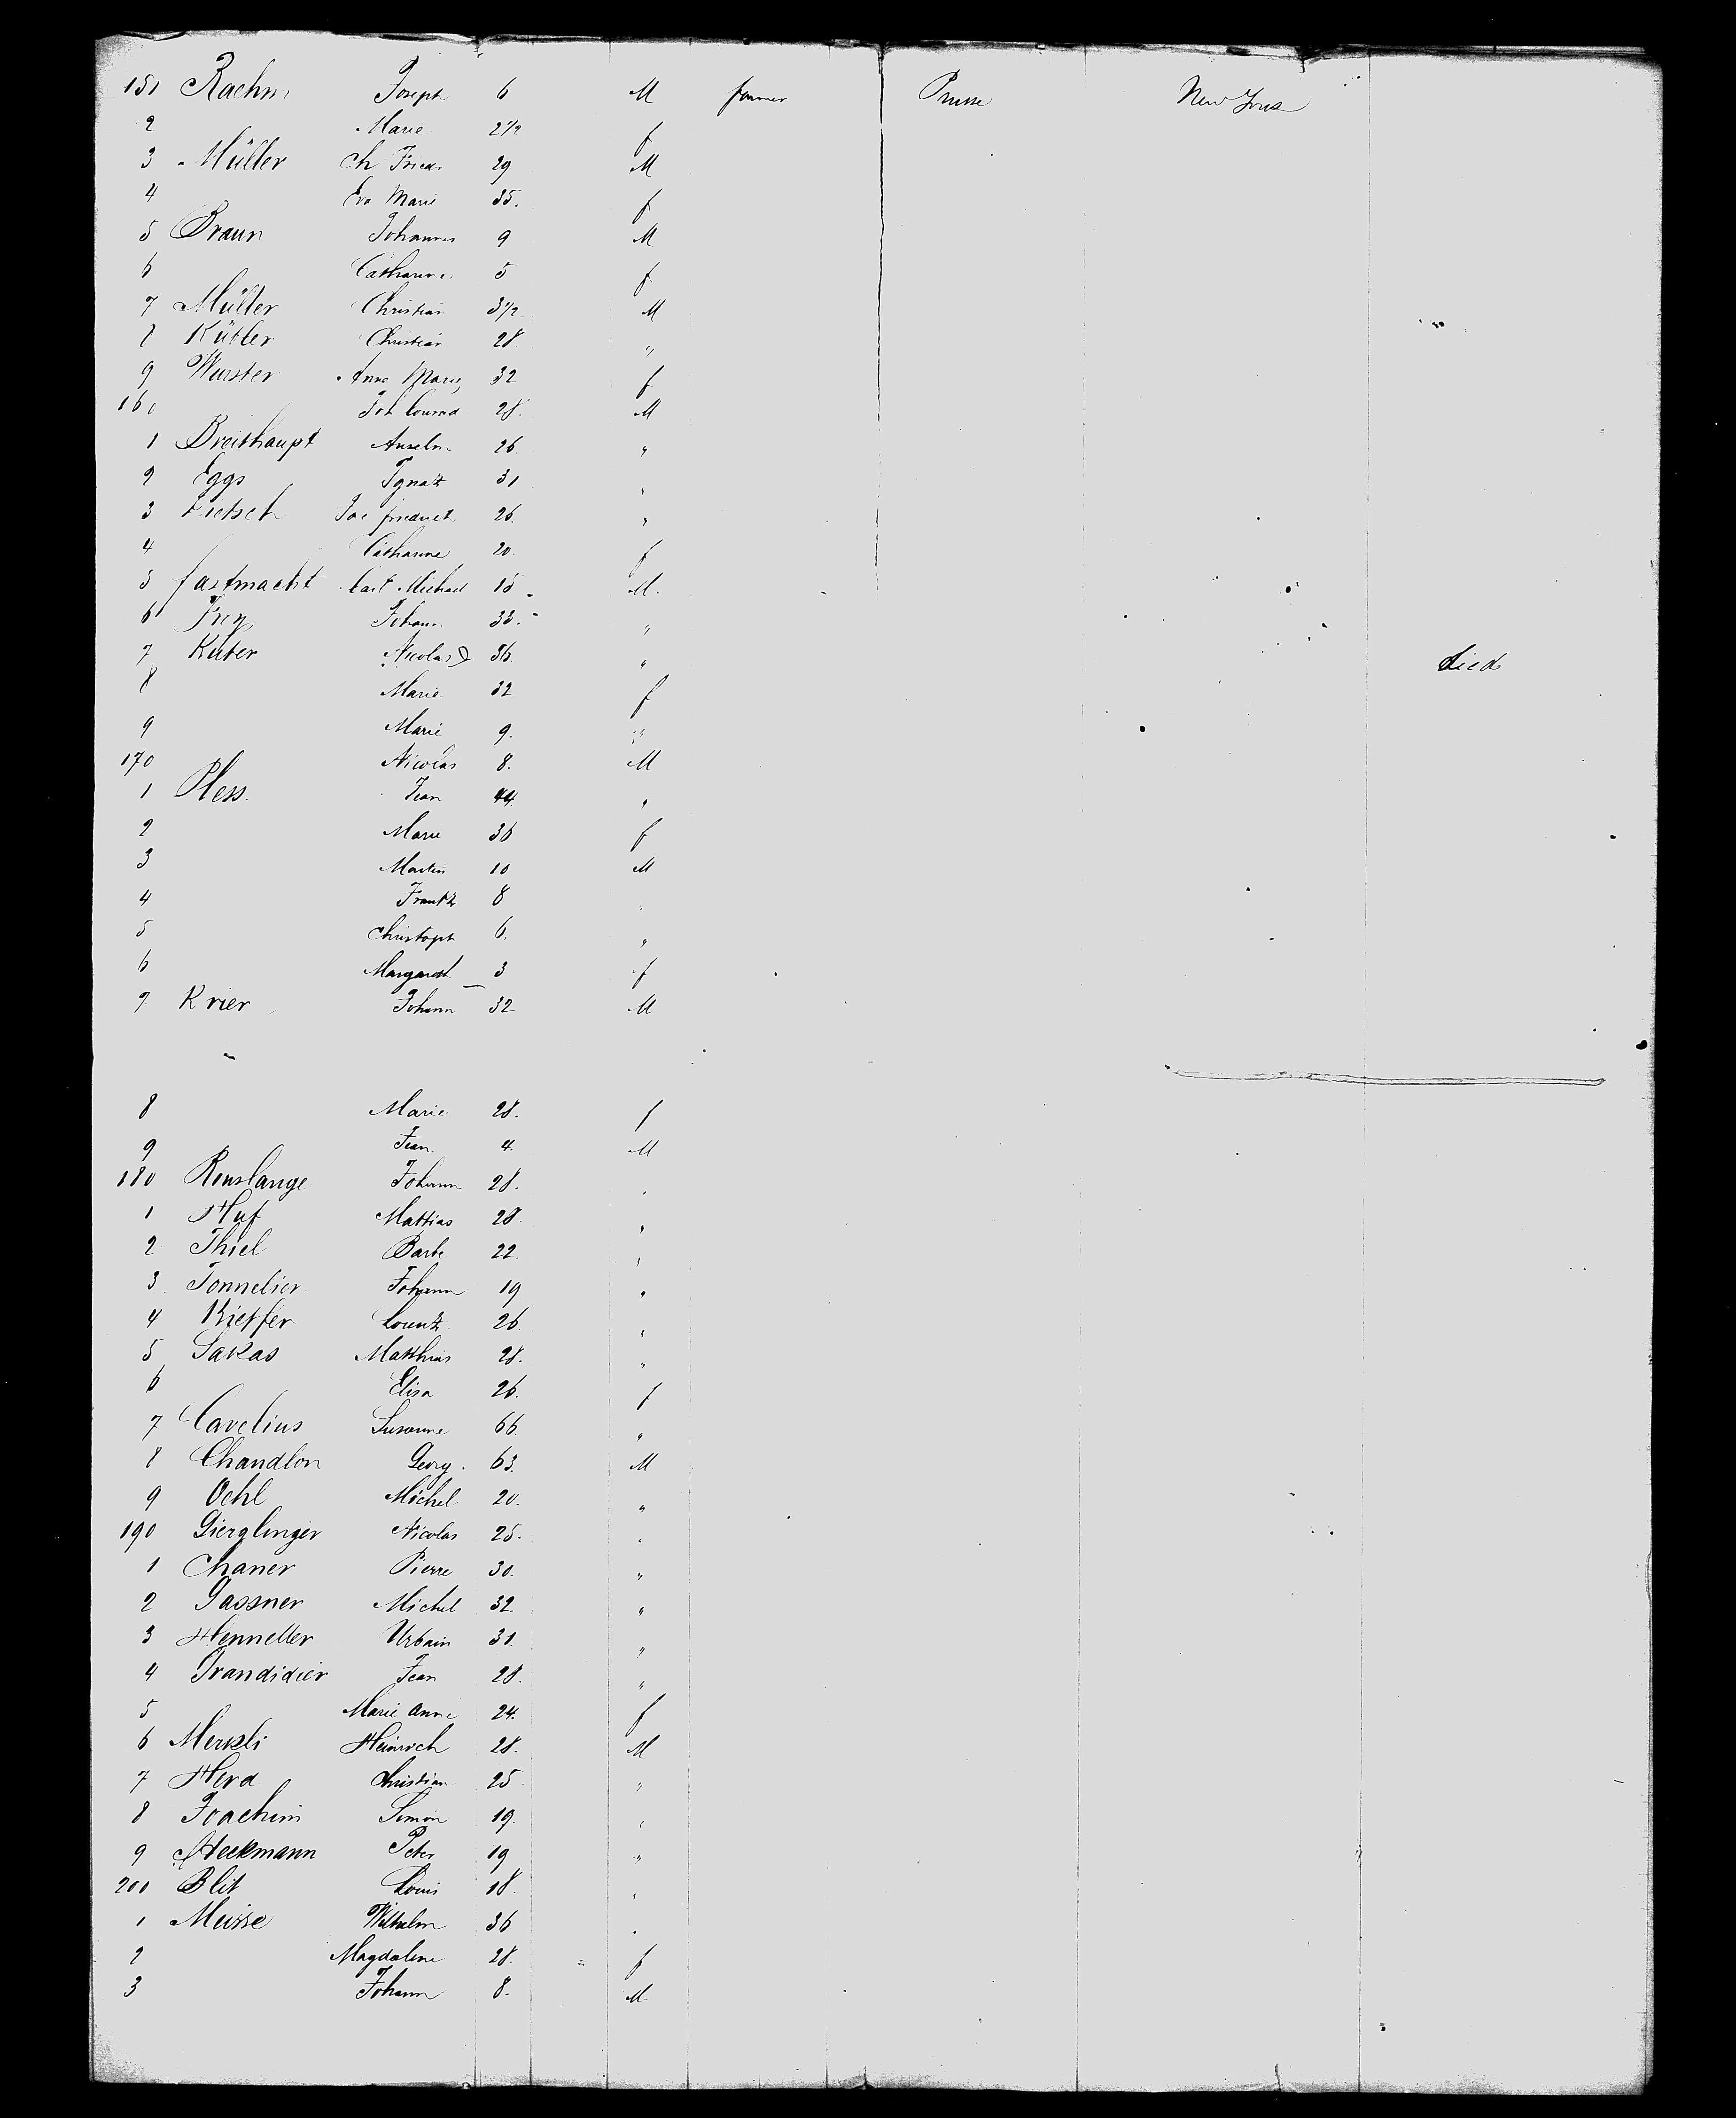 151 Rachm Joseph 6 M farmer Prusse New York
2 Marie 2 1/2 f
3 Müller Ch Friedr 29 M
4 Eva Marie 35. f
5 Braun Johannes 9 M
6 Catharine 5 f
7 Müller Christian 3 1/2 M
8 Kübler Christian 28 "
9 Wurster Anna Maria 32 f
160 Joh Conrad 28. M
1 Breithaupt Anselm 26 "
2 Eggs Ignatz 31 "
3 Friedrich 26 "
4 Catharine 20. f
5 fastnacht Carl Michael 15 M.
6 Frey Johann 33. "
7 Kuter Nicolas 36 " died
8 Marie 32 f
9 Marie 9. "
170 Nicolas 8. M
1 Pless. Jean 44. "
2 Marie 36 f
3 Martin 10 M
4 Frantz 8 "
5 Christoph 6. "
6 Margareth 3 f
7 Krier Johann 32 M
8 Marie 28. f
9 Jean 4. M
180 Renslange Johann 28. "
1 Huf Mattias 28 "
2 Thiel Barbe 22 "
3 Tonnelier Johann 19 "
4 Kieffer Lorentz 26 "
5 Sakas Matthias 28. "
6 Elisa 26. f
7 Cavelius Susanne 66. "
8 Chandlon Georg. 63. M
9 Oehl Michel 20. "
190 Gierglinger Nicolas 25. "
1 Chaner Pierre 30. "
2 Gassner Michel 32 "
3 Hennelter Urbain 31. "
4 Grandidier Jean 28. "
5 Marie Anne 24. f
6 Merkli Heinrich 28. M
7 Herd Christian 25 "
8 Joachim Simon 19. "
9 Heckmann Peter 19 "
200 Blit Louis 18. "
1 Meisse Wilhelm 36 "
2 Magdalene 28. f
3 Johann 8. M